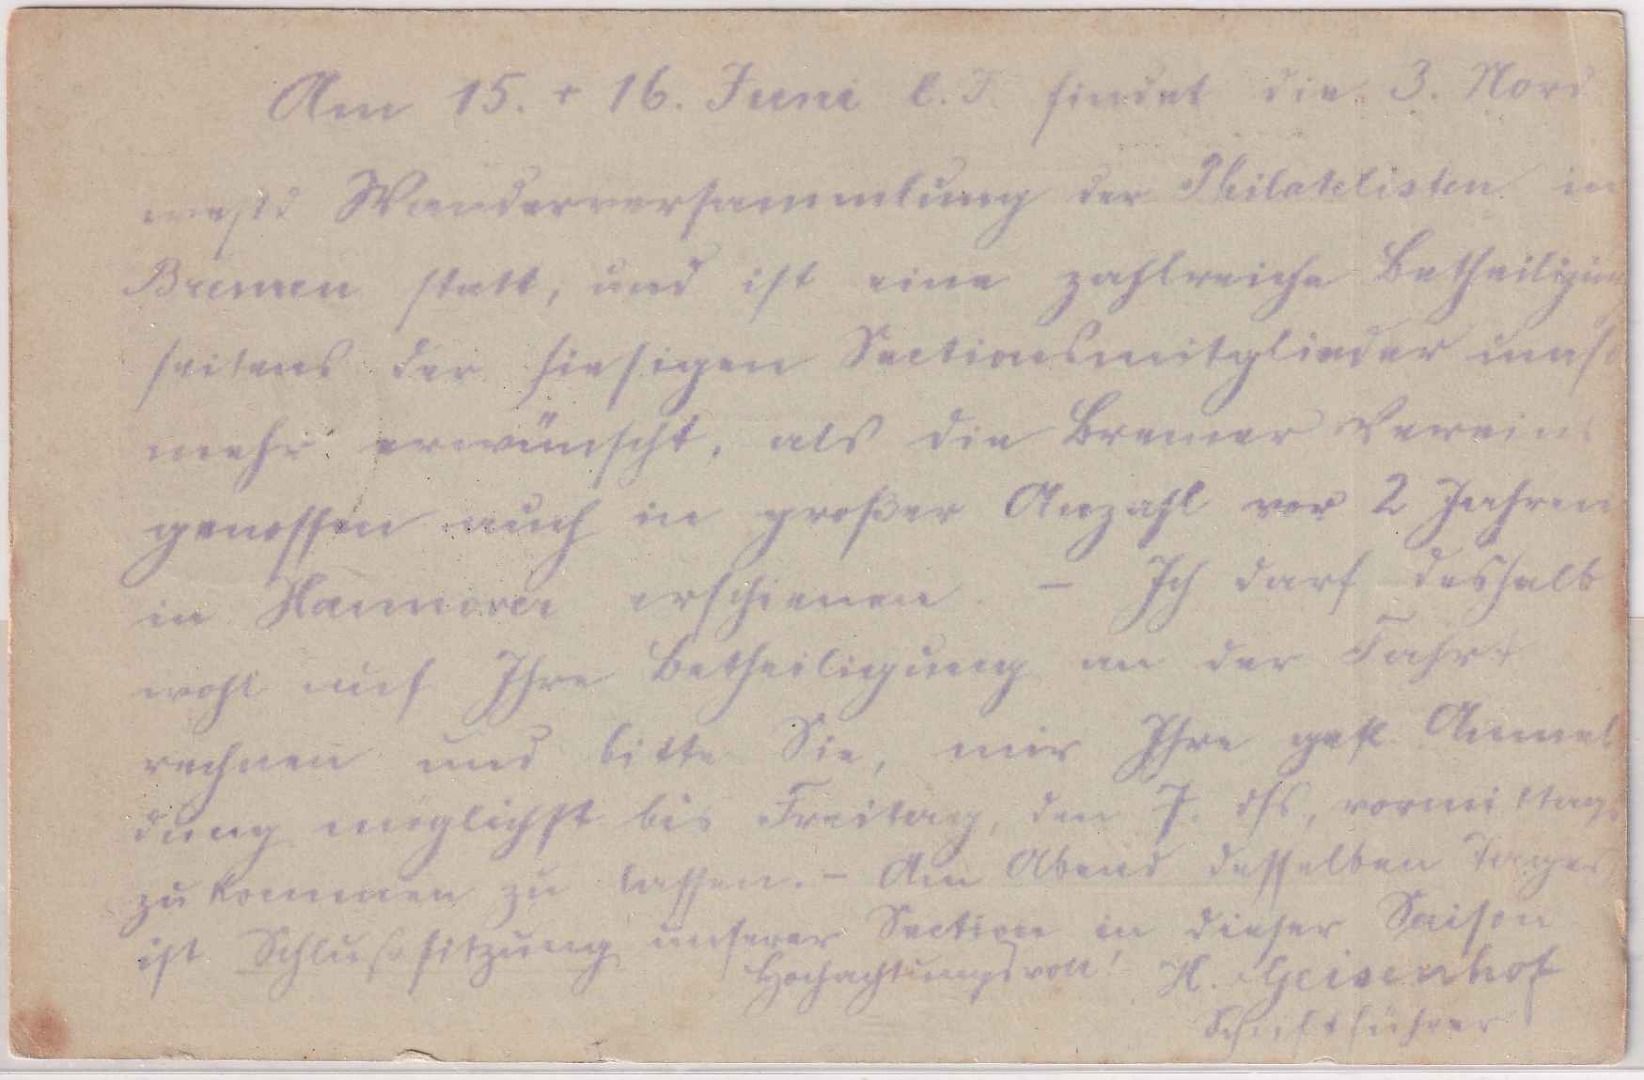 Am 15. + 16. Juni l. J. findet die 3. Nord
westd Wanderversammlung der Philatelisten in
Bremen statt, und ist eine zahlreiche Betheiligung
seitens der hiesigen Sectionsmitglieder umso
mehr erwünscht, als die Bremer Vereins
genossen auch in großer Anzahl vor 2 Jahren
in Hannover erschienen. – Ich darf deshalb
wohl auf Ihre Betheiligung an der Fahrt
rechnen und bitte Sie, mir Ihre gefl. Anmel
dung möglichst bis Freitag, den 7. dfs, vormittags
zukommen zu lassen. – Am Abend desselben Tages
ist Schlußsitzung unserer Section in dieser Saison
Hochachtungsvoll! H. Geisenhof
Schriftführer